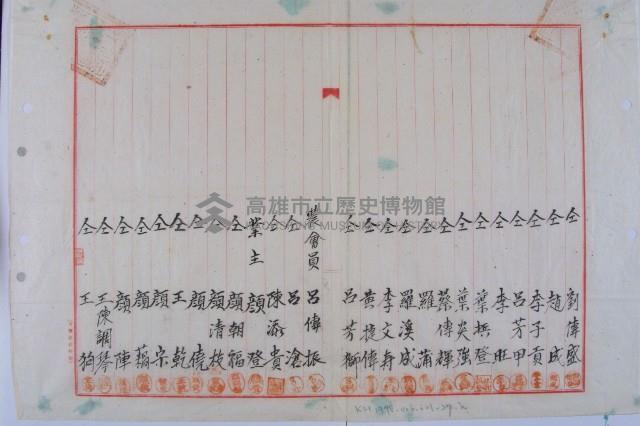 仝 劉偉盛
仝 趙成
仝 李子貢
仝 呂芳甲
仝 李旺
仝 葉振登
仝 葉炎強
仝 蔡傳輝
仝 羅蒲
仝 羅溪成
仝 李文舟
仝 黃捷偉
仝 呂芳獅
農會員 呂偉振
仝 呂滄
仝 陳添貴
業主 顏登
仝 顏朝福
仝 顏清枝
仝 顏僥
仝 王乾
仝 顏宗
仝 顏藕
仝 顏陣
仝 王陳調琴
仝 王狗
高雄市立歷史博物館
KAOHSIUNG MUSEUM OF HISTORY